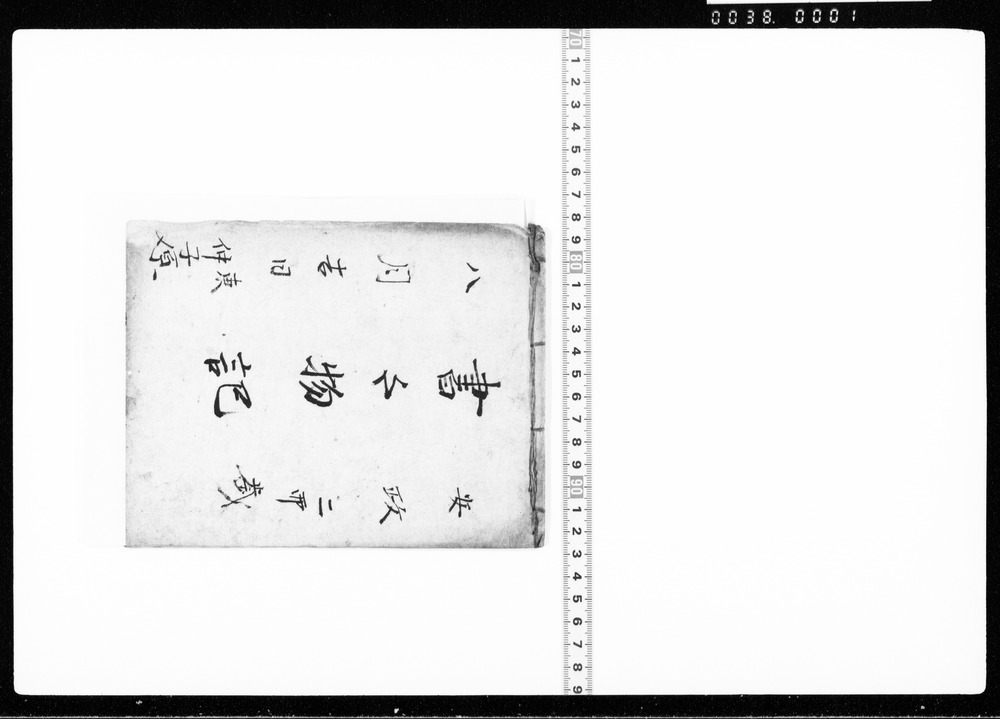 0038. 0001
安政二卯歳
書 物記
八月吉日
仲子
70 1 2 3 4 5 6 7 8 9 80 1 2 3 4 5 6 7 8 9 90 1 2 3 4 5 6 7 8 9